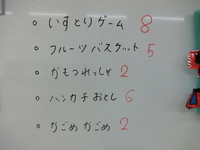 ○ いすとりゲーム 8
○ フルーツバスケット 5
○ かもつれっしゃ 2
○ ハンカチおとし 6
○ かごめかごめ 2